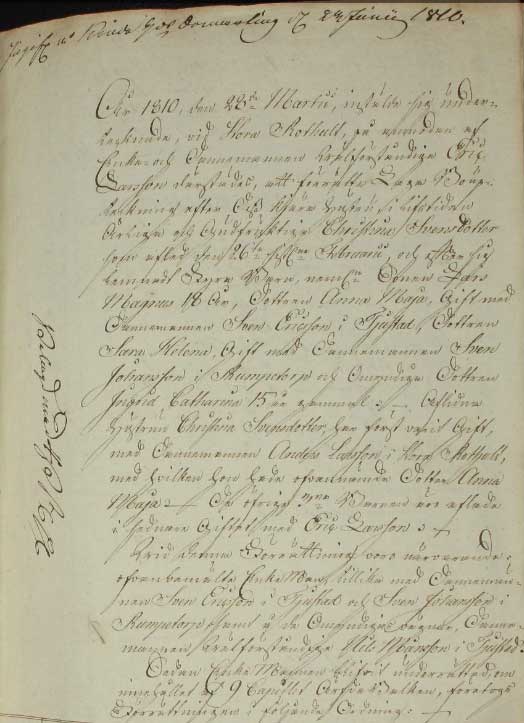 Ingifv. wid Kinds Hds Sommarting d 22 Junii 1810.
År 1810, den 28de Martii, instälde sig under-
tecknade, vid Stora Rothult, på anmodan af
Enke- och Dannemannen Wälförståndige Eric
Larsson därstädes, att förrätta Laga Boup-
teckning efter Dess Kjära Hustru, i lifstiden
Ärliga och Gudfruktige Christina Svensdotter
som afled den 26te Februarii, och efter sig
lemnadt Fyra Barn, neml. Sonen Lars
Magnus 18 år, Dottren Anna Maja, Gift med
Dannemannen Sven Ericson i Tjustad, Dottren
Sara Helena, Gift med Dannemannen Sven
Johansson i Rumpetorp och Omyndige Dottren
Ingrid Catharina 15 år gammal. Aflidne
Hustrun Christina Svensdotter, har först varit Gift,
med Dannemannen Anders Larsson, i Stora Rothult,
med hvilken hon hade ofvannämde Dotter Anna
Maja. De öfrige Barnen äro aflade
i sednare Giftet med Eric Larsson.
Wid denna Förrättning voro närvarande
ofvanbemälte Enke Man, tillika med Danneman-
nen Sven Ericsson i Tjustad och Sven Johansson i
Rumpetorp samt å de Omyndigas vägnar, Danne-
mannen Wälförståndige Nils Månsson i Tjustad.
Sedan Enke Mannen blifvit underrättad om
innehållet af 9 Capitlet Ärfda Balken, företogs
Förrättningen i följande Ordning: